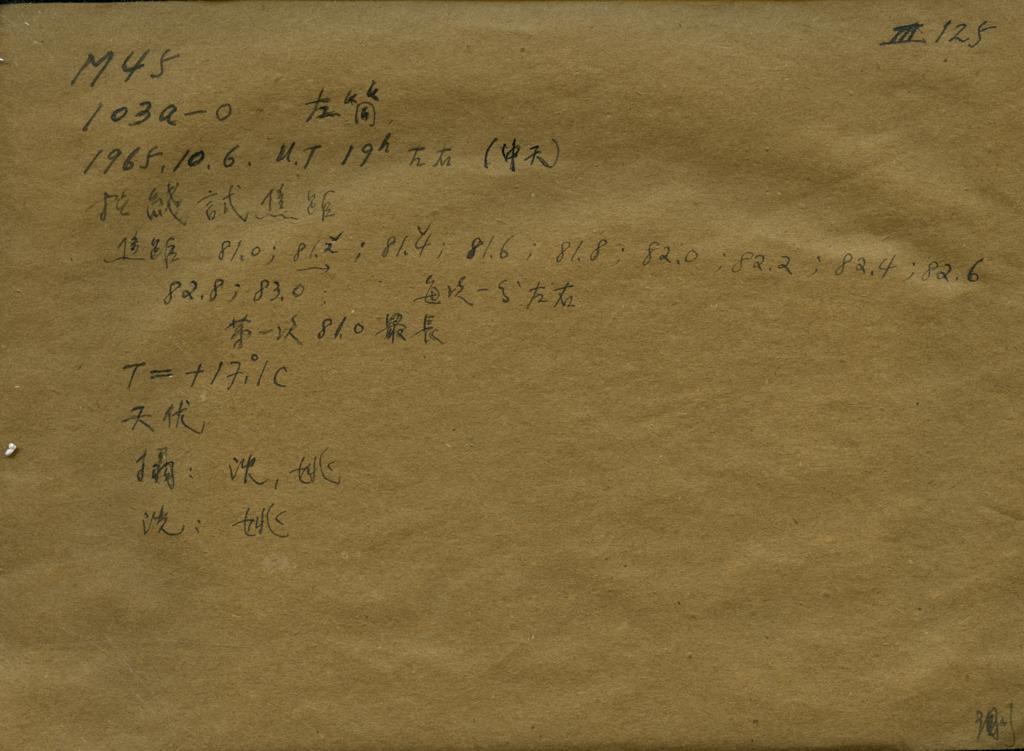 III 125
M45
103a-O 左筒
1965.10.6. U.T 19h 左右 (中天)
拉綫試焦距
焦距 81.0; 81.2; 81.4; 81.6; 81.8; 82.0; 82.2; 82.4; 82.6
82.8; 83.0; 每次一分左右
第一次 81.0 最長
T = +17.°1C
天优
攝: 沈, 姚
洗: 姚